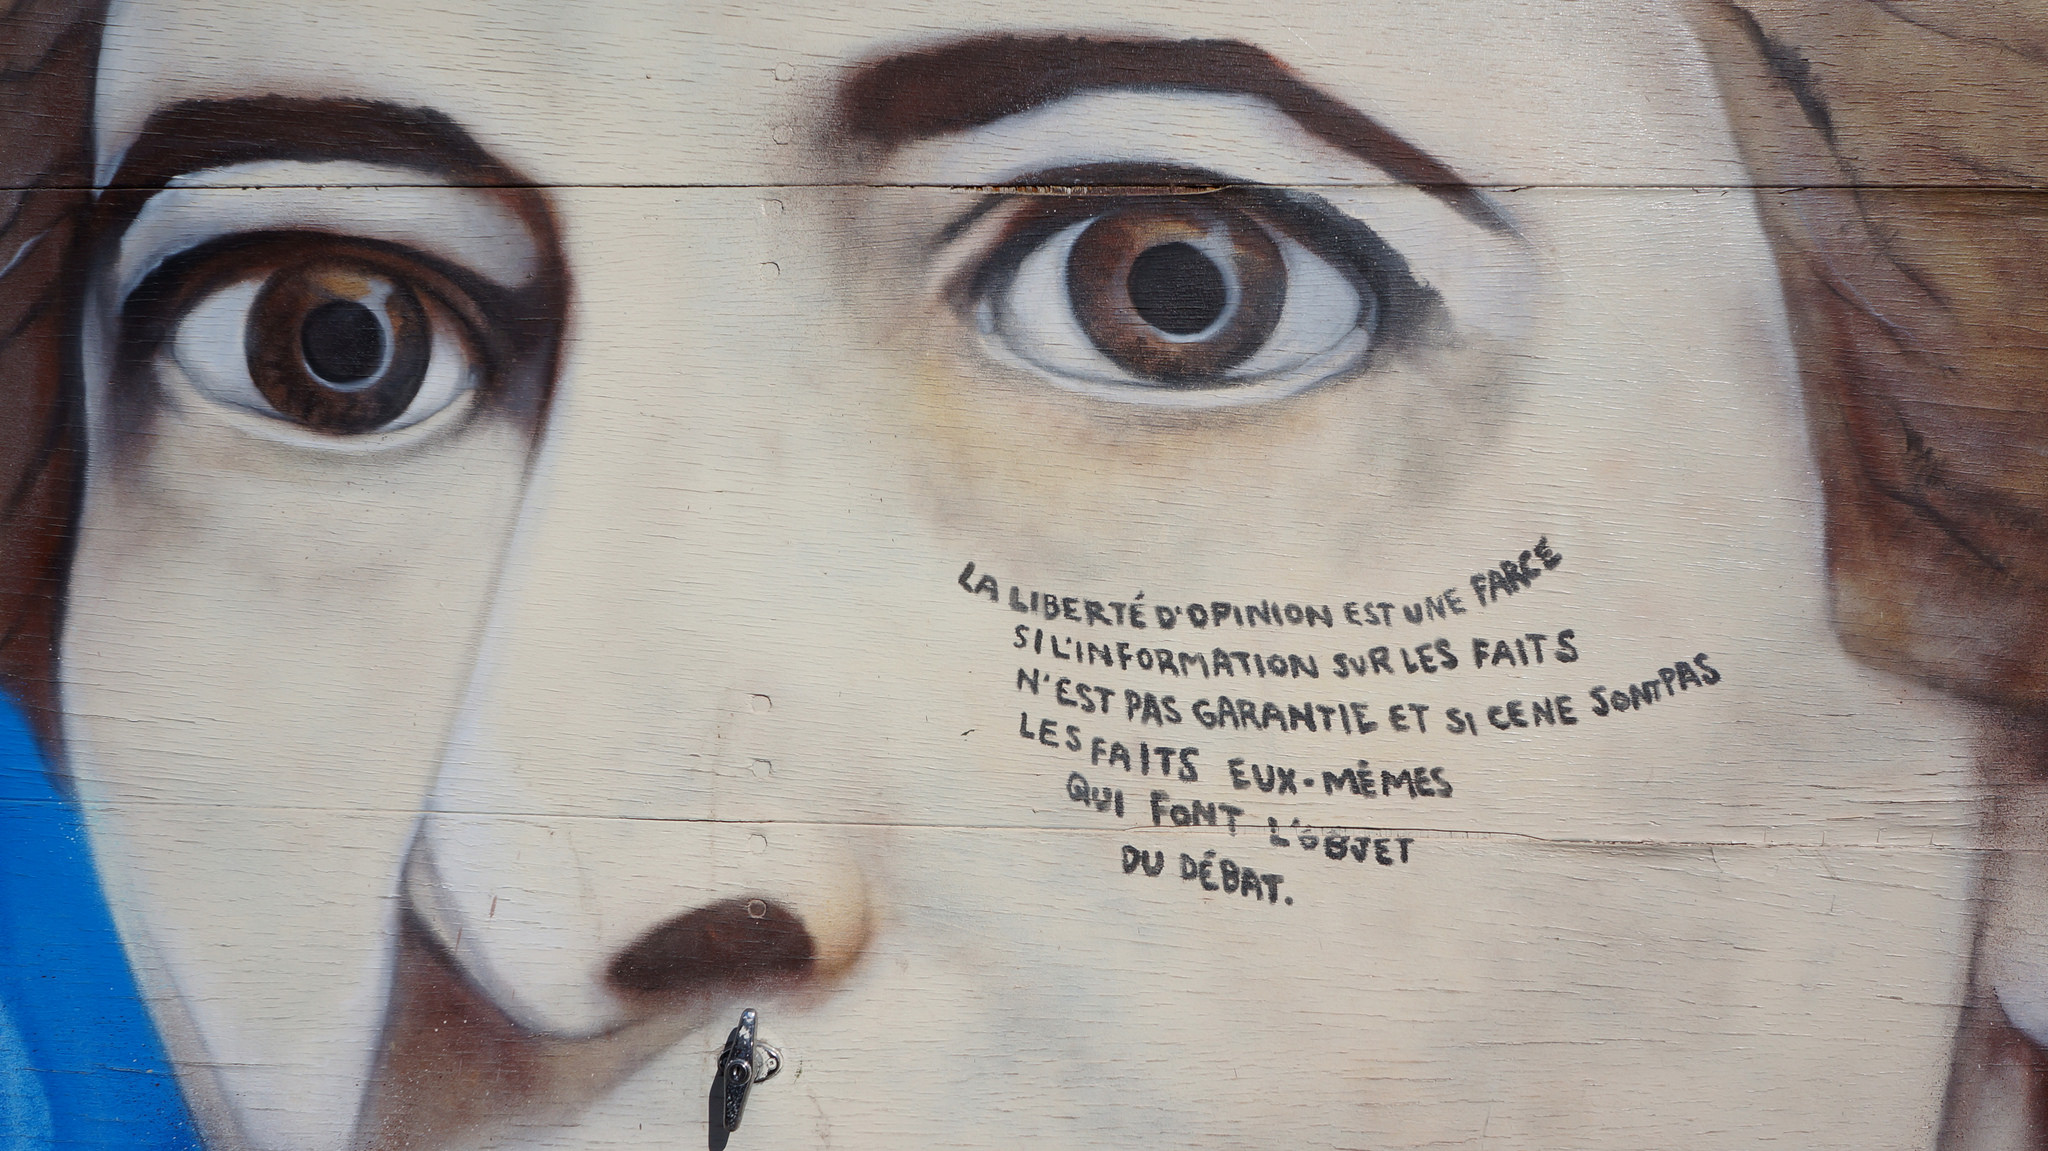 LA LIBERTÉ D'OPINION EST UNE FARCE
SI L'INFORMATION SUR LES FAITS
N'EST PAS GARANTIE ET SI CE NE SONT PAS
LES FAITS EUX-MÊMES
QUI FONT L'OBJET
DU DÉBAT.